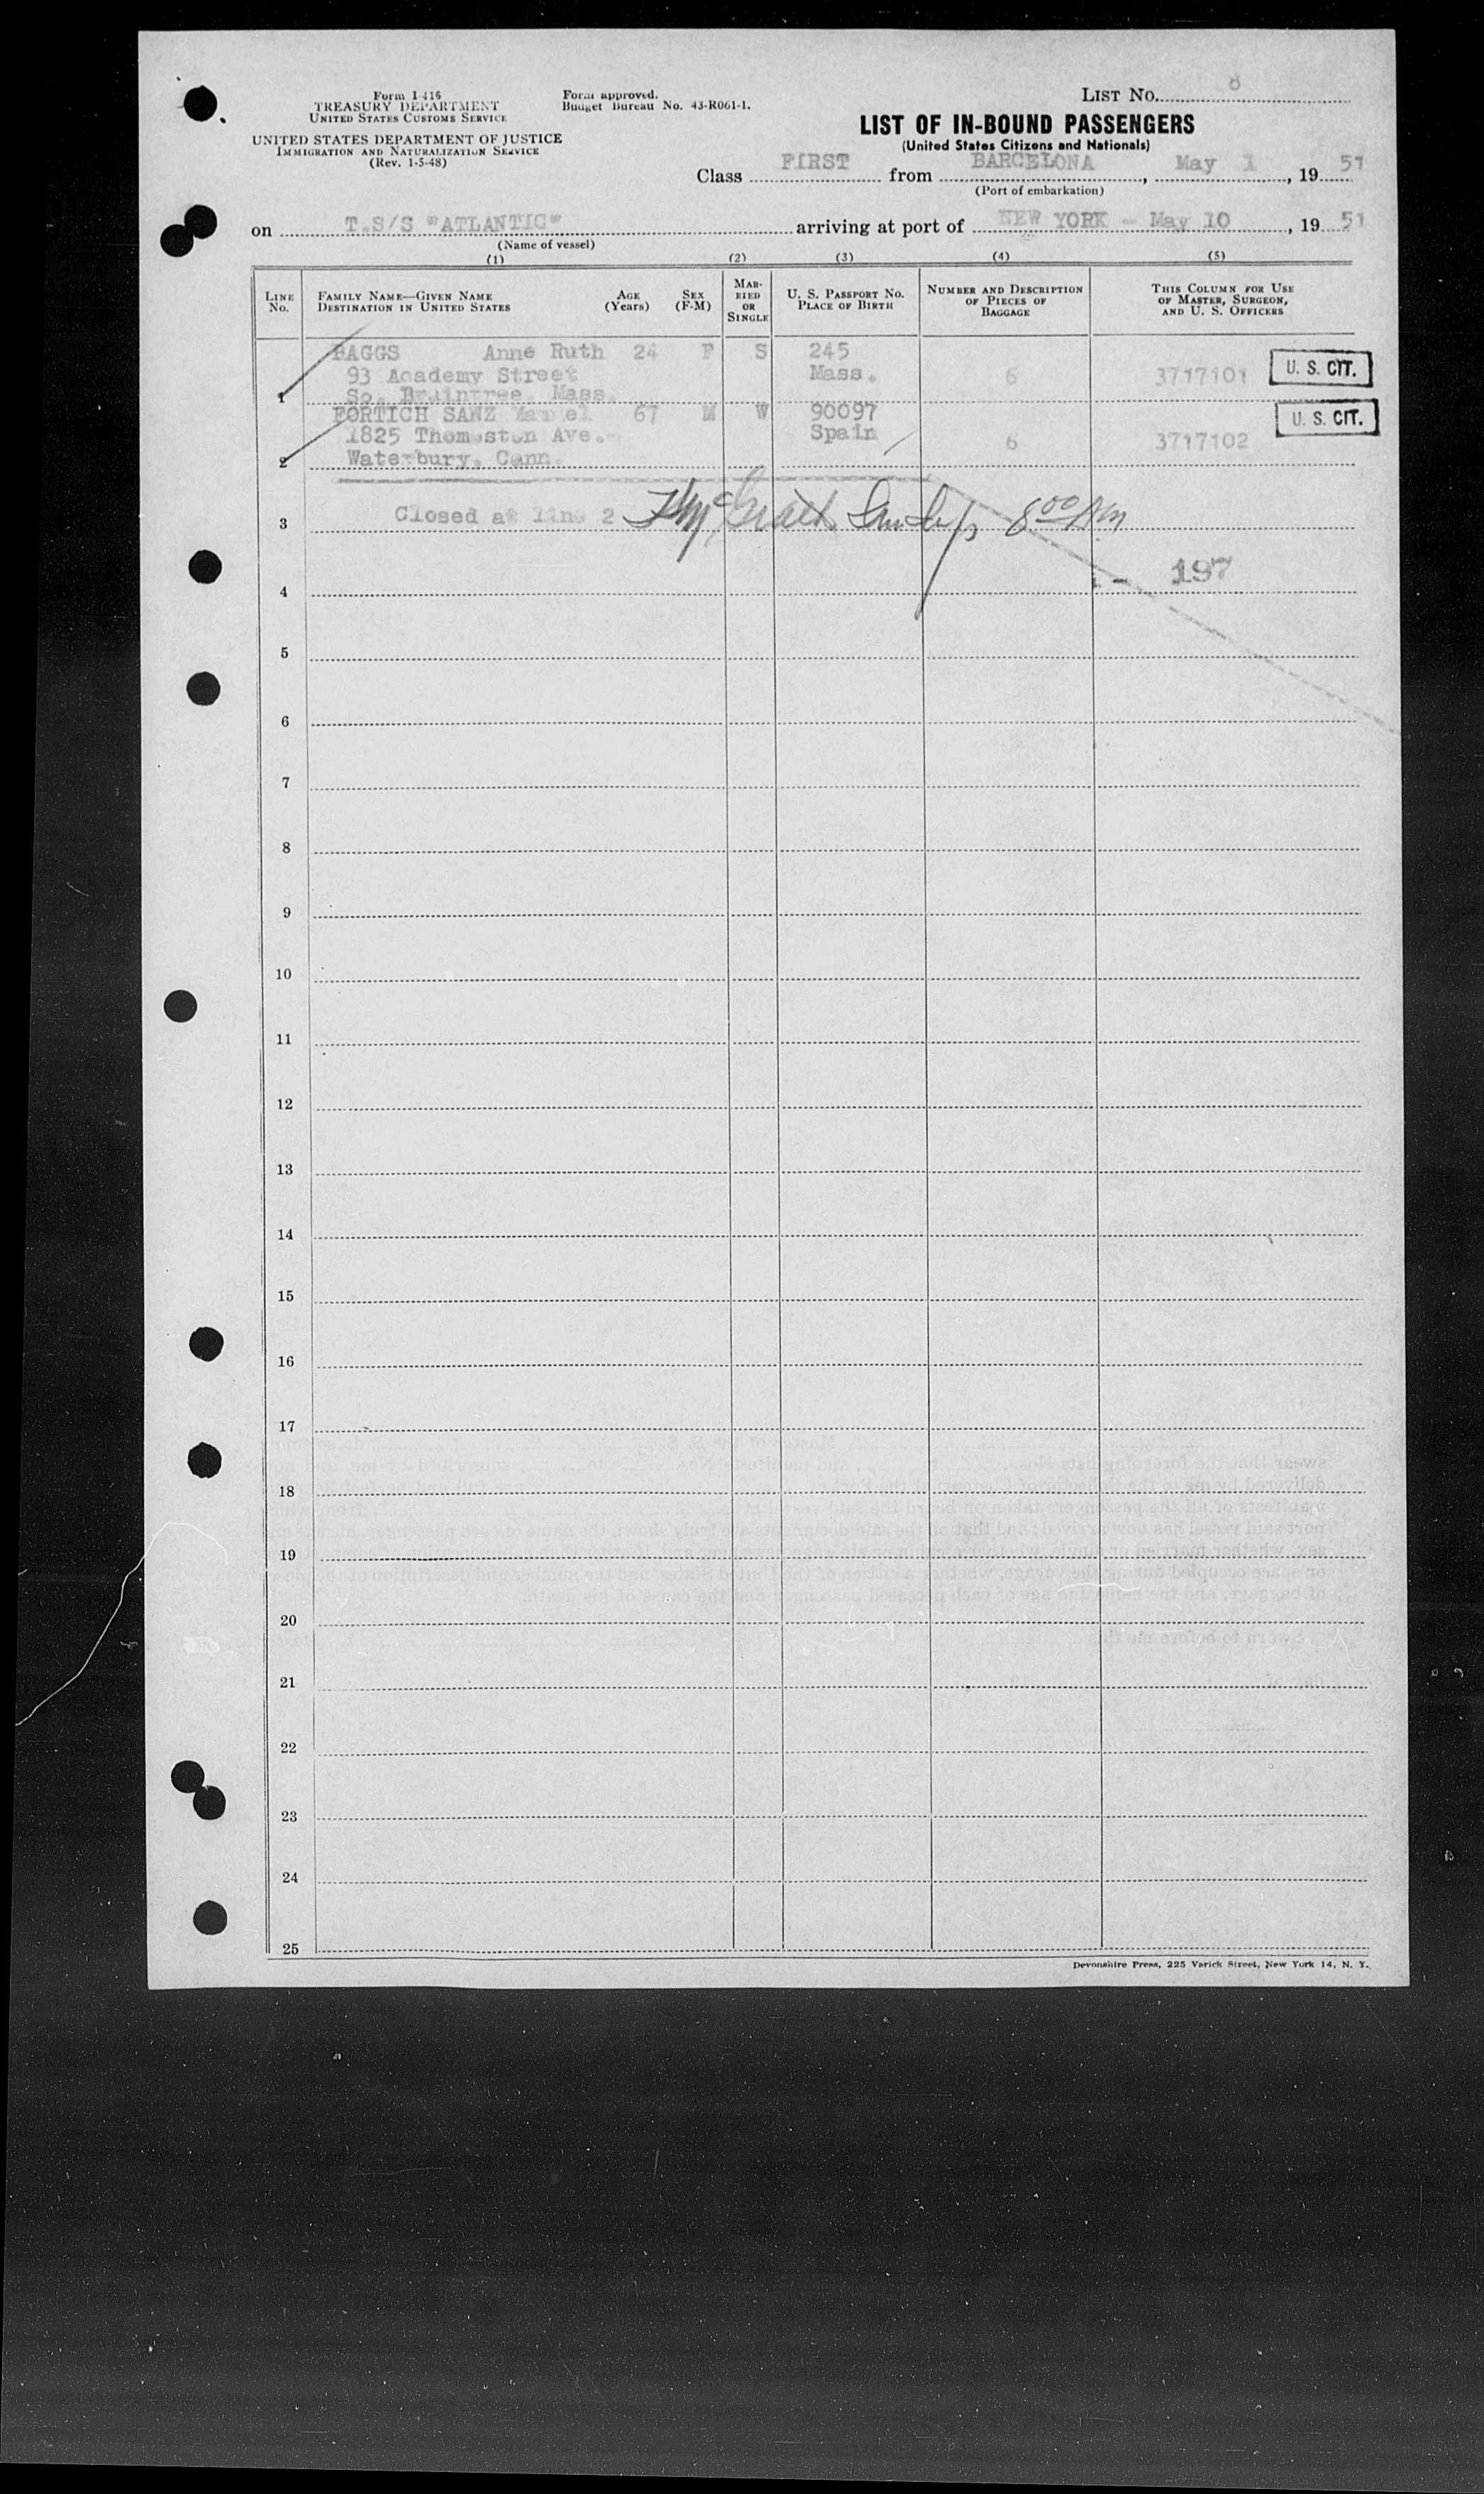 Form I-416
TREASURY DEPARTMENT
UNITED STATES CUSTOMS SERVICE
UNITED STATES DEPARTMENT OF JUSTICE
IMMIGRATION AND NATURALIZATION SERVICE
(Rev. 1-5-48)
Form approved.
Budget Bureau No. 43-R061-1.
LIST NO. 8
LIST OF IN-BOUND PASSENGERS
(United States Citizens and Nationals)
Class FIRST from BARCELONA, May 1, 19 51
(Port of embarkation)
on T.S/S "ATLANTIC" arriving at port of NEW YORK - May 10, 19 51
(Name of vessel)
(1) (2) (3) (4) (5)
LINE NO.
FAMILY NAME—GIVEN NAME
DESTINATION IN UNITED STATES
AGE (Years)
SEX (F-M)
MARRIED OR SINGLE
U. S. PASSPORT NO.
PLACE OF BIRTH
NUMBER AND DESCRIPTION OF PIECES OF BAGGAGE
THIS COLUMN FOR USE OF MASTER, SURGEON, AND U. S. OFFICERS
BAGGS Anne Ruth 24 F S 245 U. S. CIT.
93 Academy Street Mass. 6 3717101
1 So. Braintree, Mass.
FORTICH SANZ Manuel 67 M W 90097 U. S. CIT.
1825 Thomaston Ave. Spain 6 3717102
2 Waterbury, Conn.
3 Closed at line 2 8 00 AM
4 - 197
5
6
7
8
9
10
11
12
13
14
15
16
17
18
19
20
21
22
23
24
25
Devonshire Press, 225 Varick Street, New York 14, N. Y.